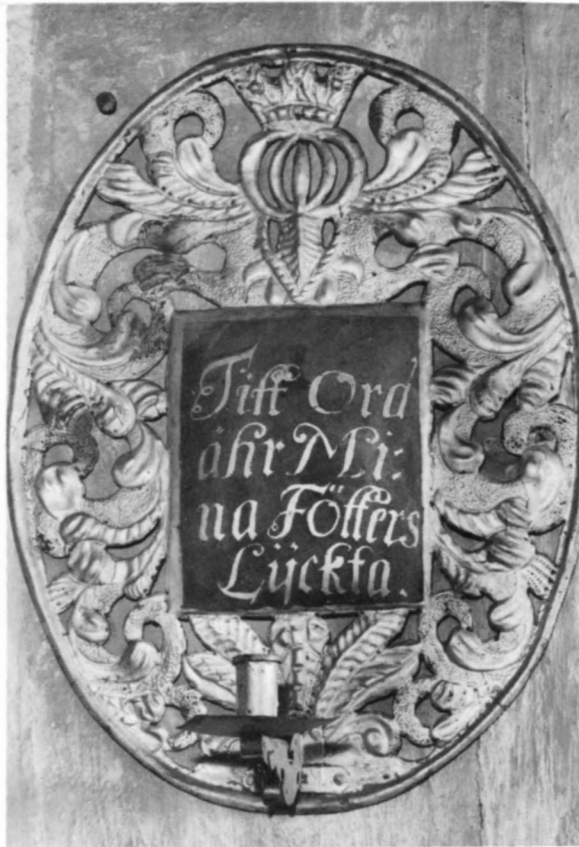 Titt Ord
ähr Mi:
na Fötters
Lÿckta.